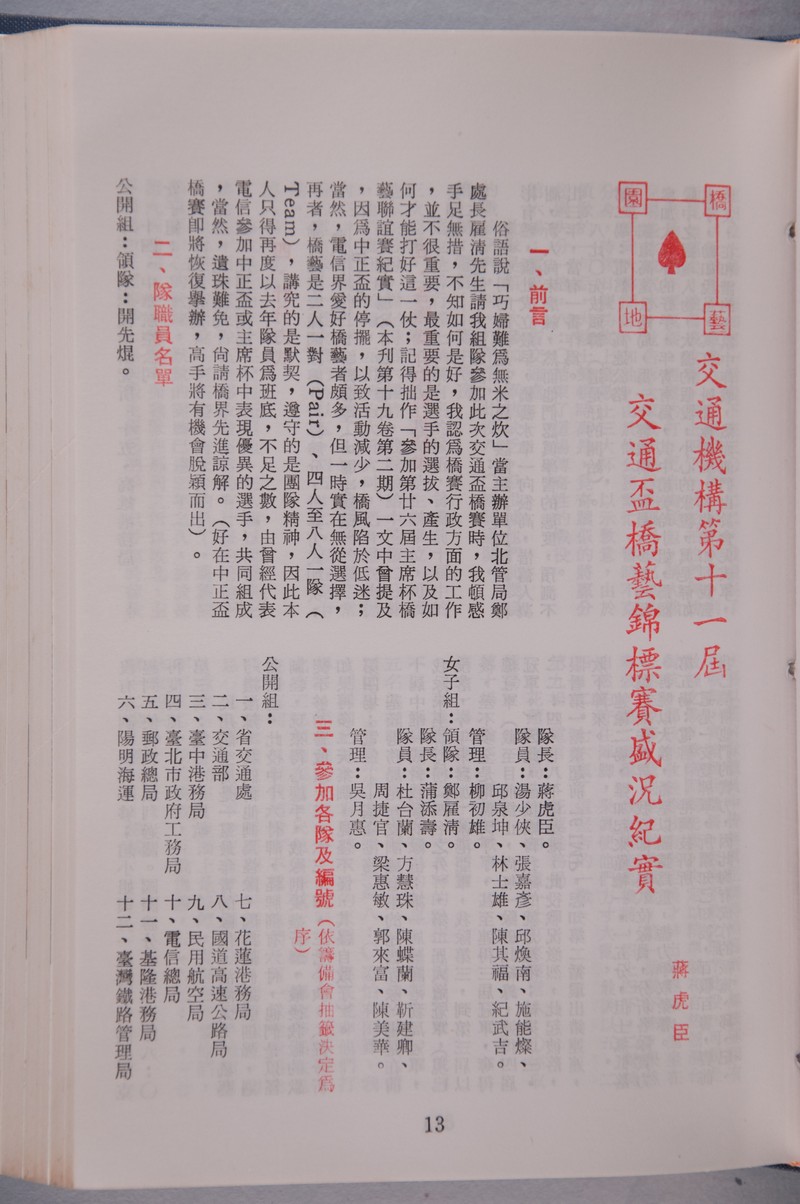 橋藝園地
交通機構第十一屆
交通盃橋藝錦標賽盛況紀實
蔣虎臣
一、前言
俗語說「巧婦難爲無米之炊」當主辦單位北管局鄭
處長雇清先生請我組隊參加此次交通盃橋賽時，我頓感
手足無措，不知如何是好，我認爲橋賽行政方面的工作
，並不很重要，最重要的是選手的選拔、產生，以及如
何才能打好這一仗；記得拙作「參加第廿六屆主席杯橋
藝聯誼賽紀實」（本刊第十九卷第二期）一文中曾提及
，因爲中正盃的停擺，以致活動減少，橋風陷於低迷；
當然，電信界愛好橋藝者頗多，但一時實在無從選擇，
再者，橋藝是二人一對（Pair）、四人至八人一隊（
Team），講究的是默契，遵守的是團隊精神，因此本
人只得再度以去年隊員爲班底，不足之數，由曾經代表
電信參加中正盃或主席杯中表現優異的選手，共同組成
，當然，遺珠難免，尙請橋界先進諒解。（好在中正盃
橋賽卽將恢復舉辦，高手將有機會脫穎而出）。
二、隊職員名單
公開組：領隊：開先焜。
隊長：蔣虎臣。
隊員：湯少俠、張嘉彥、邱煥南、施能燦、
邱泉坤、林士雄、陳其福、紀武吉。
管理：柳初雄。
女子組：領隊：鄭雇清。
隊長：蒲添壽。
隊員：杜台蘭、方慧珠、陳蝶蘭、靳建卿、
周捷官、梁惠敏、郭來富、陳美華。
管理：吳月惠。
三、參加各隊及編號（依籌備會抽籤決定爲
序）
公開組：
一、省交通處
二、交通部
三、臺中港務局
四、臺北市政府工務局
五、郵政總局
六、陽明海運
七、花蓮港務局
八、國道高速公路局
九、民用航空局
十、電信總局
十一、基隆港務局
十二、臺灣鐵路管理局
13